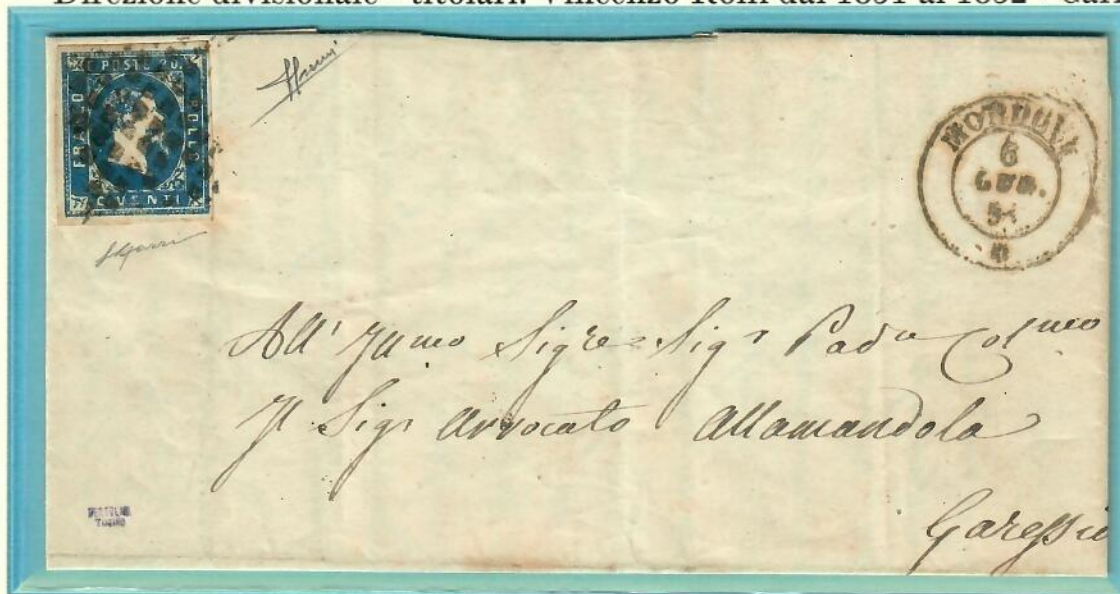 Direzione divisionale - titolari: Vincenzo Rolfi dal 1851 al 1852 -
C. POSTE 20.
FRANCO
BOLLO
C. VENTI
MONDOVI
6
LUG.
51
All' Ill.mo Sig.re Sig.r Pad.n Col.mo
Il Sig.r Avvocato Allamandola
Garessio
TORINO